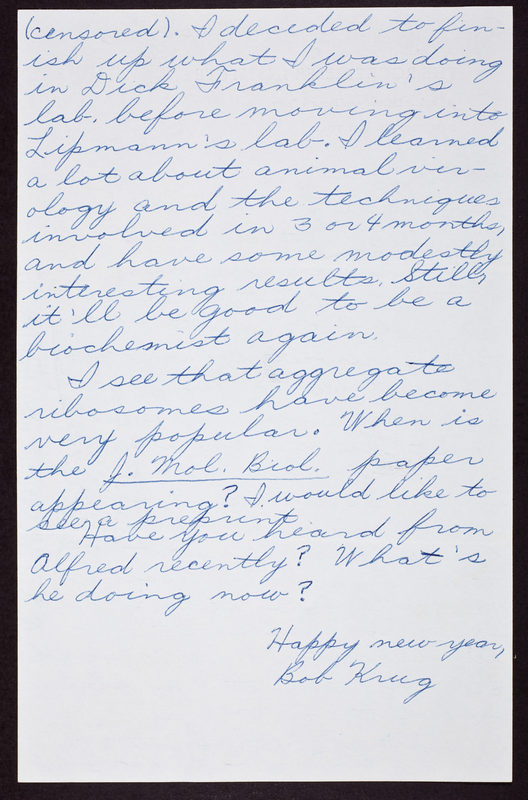 (censored). I decided to fin-
ish up what I was doing
in Dick Franklin's
lab. before moving into
Lipmann's lab. I learned
a lot about animal vir-
ology and the techniques
involved in 3 or 4 months,
and have some modestly
interesting results. Still,
it'll be good to be a
biochemist again.
I see that aggregate
ribosomes have become
very popular. When is
the J. Mol. Biol. paper
appearing? I would like to
see a preprint.
Have you heard from
Alfred recently? What's
he doing now?
Happy new year,
Bob Krug